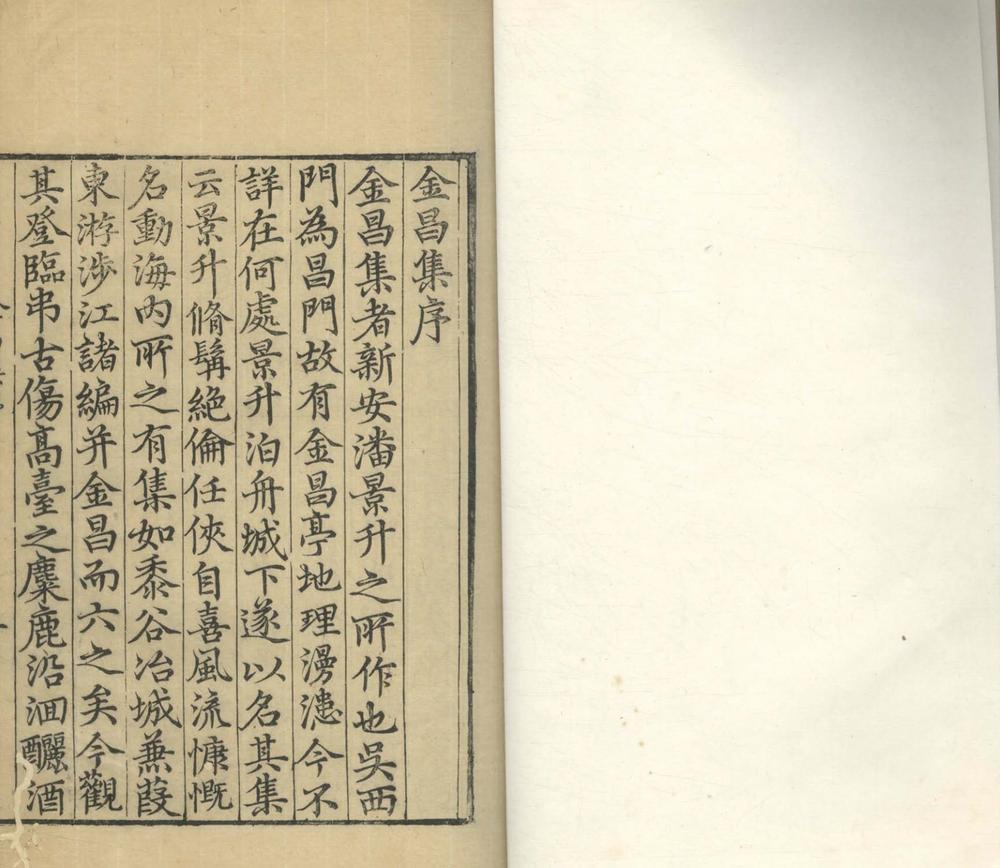 金昌集序
金昌集者新安潘景升之所作也吳西
門為昌門故有金昌亭地理漫漶今不
詳在何處景升泊舟城下遂以名其集
云景升脩髯絕倫任俠自喜風流慷慨
名動海內所之有集如黍谷冶城蒹葭
東游涉江諸編并金昌而六之矣今觀
其登臨弔古傷髙臺之麋鹿沿洄釃酒